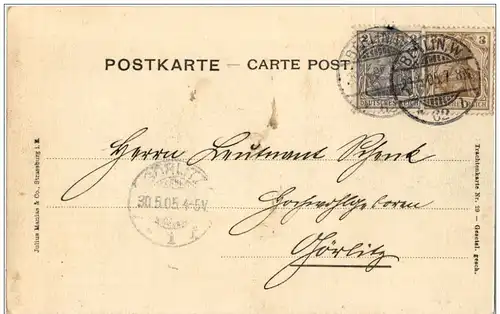 POSTKARTE – CARTE POST
BERLIN.W
62
DEUTSCHES REICH
3
Herrn Leutnant Schenk
Hochwohlgeboren
Görlitz
GÖRLITZ
30.5.05.4-5V
1
Julius Manias & Co., Strassburg i. E.
Trachtenkarte Nr. 19 – Gesetzl. gesch.